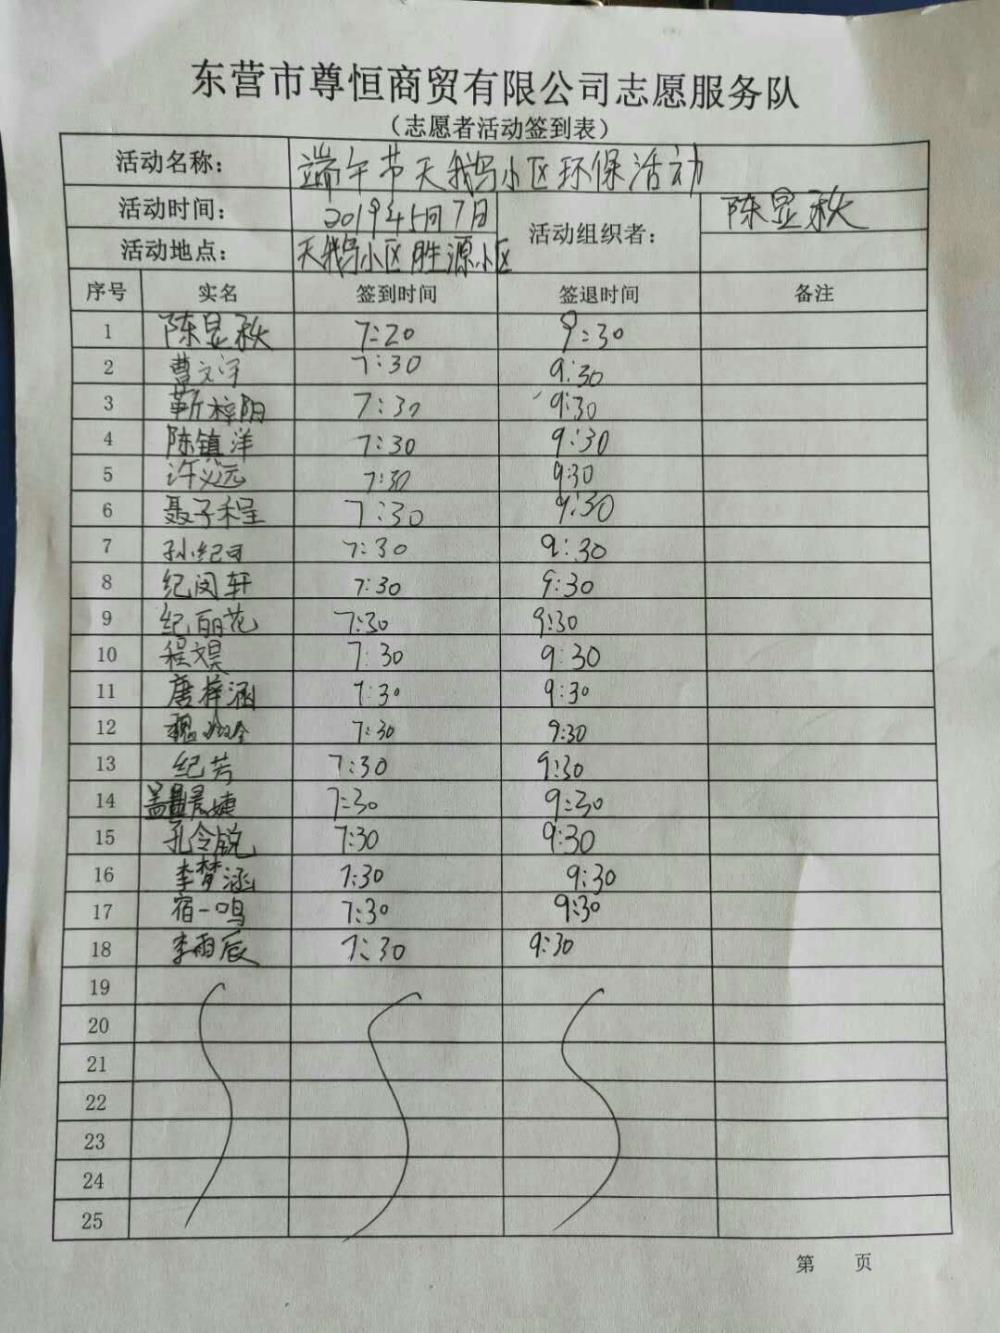 东营市尊恒商贸有限公司志愿服务队
（志愿者活动签到表）
活动名称： 端午节天鹅小区环保活动
活动时间： 2019年5月7日 活动组织者： 陈显秋
活动地点： 天鹅小区 胜源小区
序号 实名 签到时间 签退时间 备注
1 陈显秋 7:20 9:30
2 曹文宇 7:30 9:30
3 靳梓阳 7:30 9:30
4 陈镇洋 7:30 9:30
5 许义远 7:30 9:30
6 聂子程 7:30 9:30
7 孙纪 7:30 9:30
8 纪闵轩 7:30 9:30
9 纪丽花 7:30 9:30
10 程文昊 7:30 9:30
11 唐梓涵 7:30 9:30
12 7:30 9:30
13 纪芳 7:30 9:30
14 婕 7:30 9:30
15 孔令锐 7:30 9:30
16 李梦涵 7:30 9:30
17 宿一鸣 7:30 9:30
18 李雨辰 7:30 9:30
19
20
21
22
23
24
25
第 页